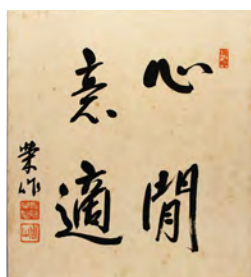 心閒
意適
榮作